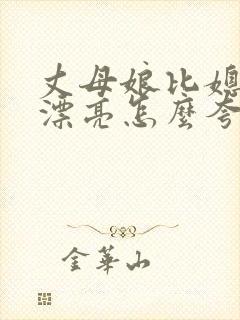 丈母娘比媳
漂亮怎麼夸
金華山